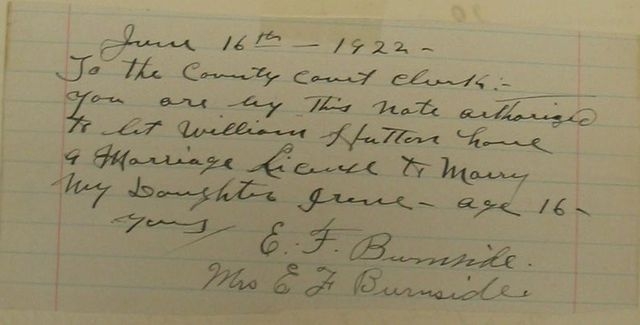 June 16th - 1922 -
To the County Court Clerk:-
you are by this note authorized
to let William Hutton have
a Marriage License to Marry
My Daughter Irene - age 16 -
yours
E. F. Burnside.
Mrs E F Burnside.